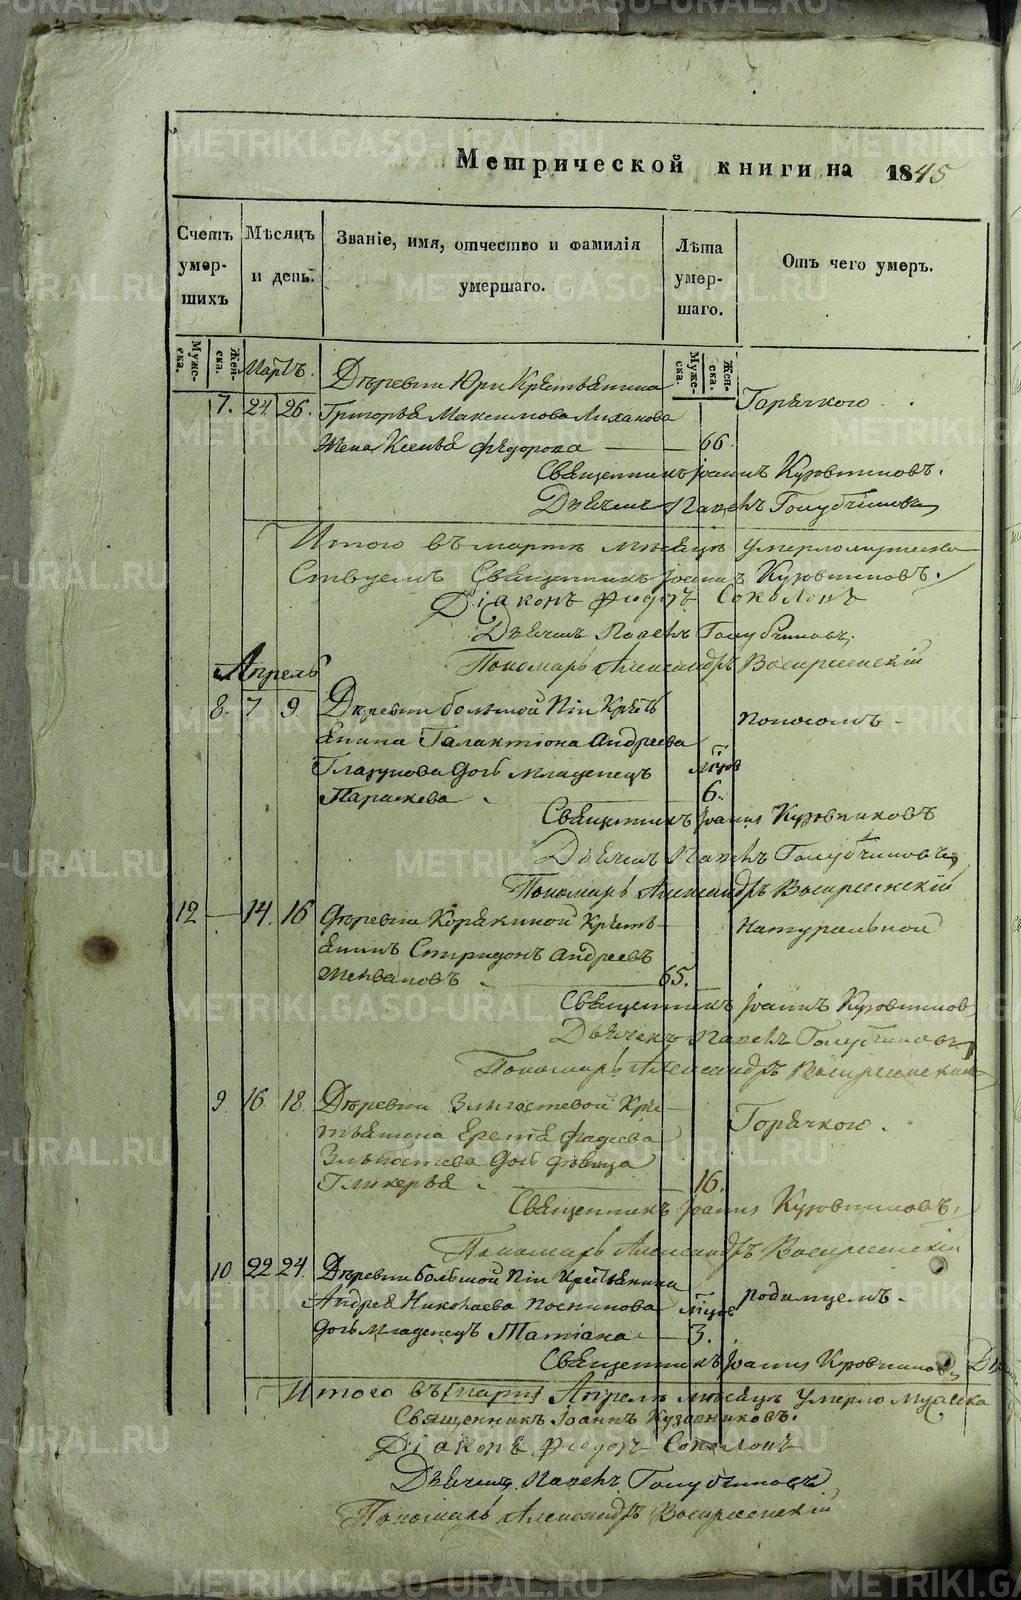 Метрической книги на 1845
Счетъ умершихъ
Мѣсяцъ и день.
Званіе, имя, отчество и фамилія умершаго.
Лѣта умершаго.
Отъ чего умеръ.
Мужеска. Женска.
Мужеска. Женска.
Мартъ.
Деревни Юри Крестьянина
7. 24 26. Григорья Максимова Лиханова
Горячкою.
Жена Ксенья Федорова 66.
Священникъ Іоаннъ Кузовниковъ.
Дьячекъ Павелъ Голубчиковъ
Итого въ мартѣ мѣсяцѣ умерло мужеска
Священникъ Іоаннъ Кузовниковъ.
Діаконъ Ѳеодоръ Соколовъ
Дьячекъ Павелъ Голубчиковъ.
Пономарь Александръ Воскресенскій
Апрель
8. 7 9. Деревни большой Піи Крест
Поносомъ
янина Галактіона Андреева
Глазунова дочь младенецъ
мцов
Параскева 6.
Священникъ Іоаннъ Кузовниковъ
Дьячекъ Павелъ Голубчиковъ
Пономарь Александръ Воскресенскій
12 — 14. 16 Деревни Корякиной Крест
Натуральной
янинъ Спиридонъ Андреевъ
65.
Священникъ Іоаннъ Кузовников
Дьячекъ Павелъ Голубчиковъ
Пономарь Александръ Воскресенскій
9. 16. 18. Деревни
Кре
Горячкою.
стьянина Еремѣя Фадеева
дочь девица
Гликерья 16.
Священникъ Іоаннъ Кузовниковъ.
Пономарь Александръ Воскресенскій
10. 22 24. Деревни большой Піи Крестьянина
Андрея Николаева
мцов
родимцемъ.
дочь младенецъ Татіана 3.
Священникъ Іоаннъ Кузовников
Итого въ [март] Апрелѣ мѣсяцѣ умерло мужеска
Священникъ Іоаннъ Кузовниковъ.
Діаконъ Ѳеодоръ Соколовъ
Дьячекъ Павелъ Голубчиковъ
Пономарь Александръ Воскресенскій
METRIKI.GASO-URAL.RU